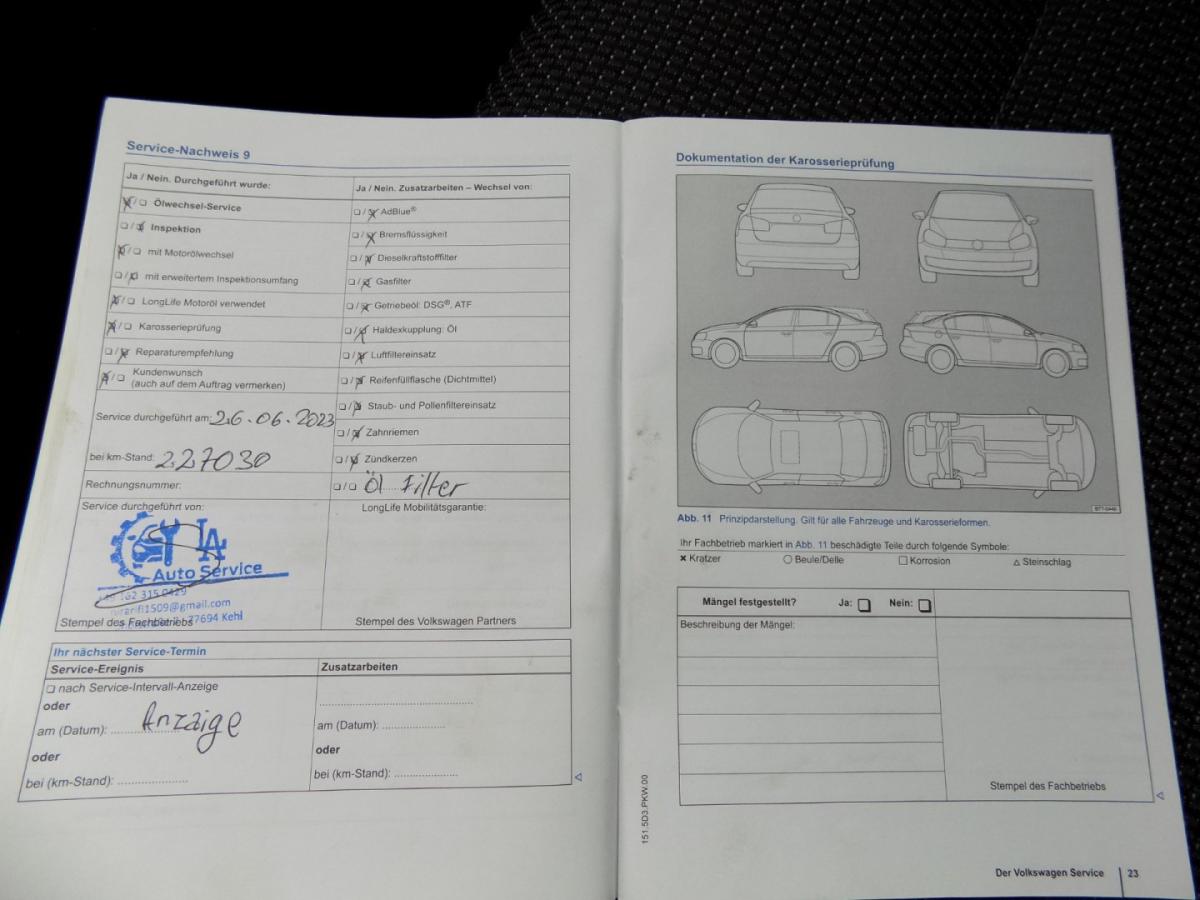 Service-Nachweis 9
Ja / Nein. Durchgeführt wurde:
Ölwechsel-Service
Inspektion
mit Motorölwechsel
mit erweitertem Inspektionsumfang
LongLife Motoröl verwendet
Karosserieprüfung
Reparaturempfehlung
Kundenwunsch
(auch auf dem Auftrag vermerken)
Service durchgeführt am: 26.06.2023
bei km-Stand: 227030
Rechnungsnummer:
Ja / Nein. Zusatzarbeiten – Wechsel von:
AdBlue®
Bremsflüssigkeit
Dieselkraftstofffilter
Gasfilter
Getriebeöl: DSG®, ATF
Haldexkupplung: Öl
Luftfiltereinsatz
Reifenfüllflasche (Dichtmittel)
Staub- und Pollenfiltereinsatz
Zahnriemen
Zündkerzen
Öl Filter
Service durchgeführt von:
LA
Auto Service
162 315 0429
1509@gmail.com
77694 Kehl
Stempel des Fachbetriebs
LongLife Mobilitätsgarantie:
Stempel des Volkswagen Partners
Ihr nächster Service-Termin
Service-Ereignis
nach Service-Intervall-Anzeige
oder
am (Datum): Anzaige
oder
bei (km-Stand):
Zusatzarbeiten
am (Datum):
oder
bei (km-Stand):
Dokumentation der Karosserieprüfung
Abb. 11 Prinzipdarstellung. Gilt für alle Fahrzeuge und Karosserieformen.
Ihr Fachbetrieb markiert in Abb. 11 beschädigte Teile durch folgende Symbole:
Kratzer Beule/Delle Korrosion Steinschlag
Mängel festgestellt? Ja: Nein:
Beschreibung der Mängel:
Stempel des Fachbetriebs
151.5D3.PKW.00
Der Volkswagen Service 23